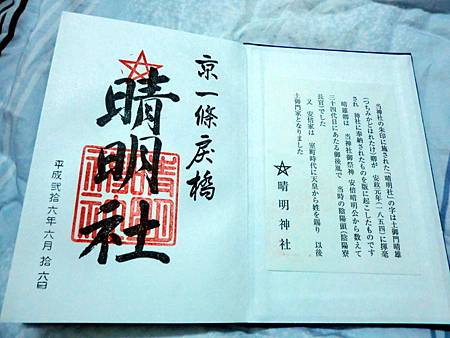 京一條戻橋
晴明社
平成貳拾六年六月拾六日
当神社の朱印に施された「晴明社」の字は土御門晴雄
(つちみかどはれたけ)卿が 安政元年(一八五四)に揮毫
され 神社に奉納されたものを版に起こしたものです
晴雄卿は 当神社御祭神 安倍晴明公から数えて
三十四代目にあたる御後胤で 当時の陰陽頭(陰陽寮
長官)でした
又 安倍家は 室町時代に天皇から姓を賜り 以後
土御門家となりました
晴明神社